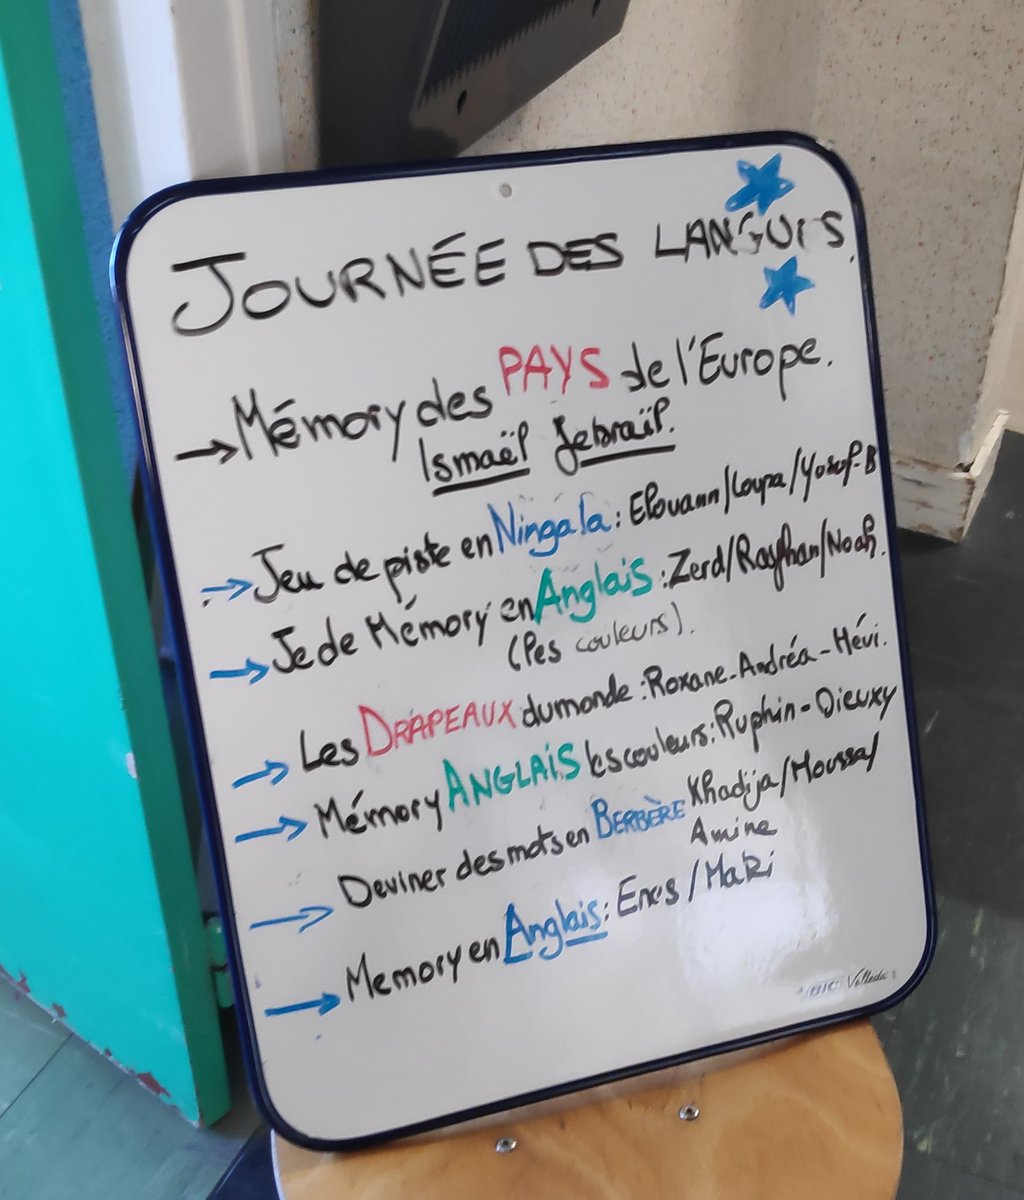 JOURNÉE DES LANGUES.
→ Mémory des PAYS de l'Europe.
Ismaël Jebraïl.
→ Jeu de piste en Ningala : Elouann/Loupa/Yosof-B
→ Je de Mémory en Anglais : Zerd/Rayhan/Noah.
(les couleurs).
→ Les DRAPEAUX du monde : Roxane-Andréa-Hévi.
→ Mémory ANGLAIS les couleurs : Ruphin-Dieuxy
→ Deviner des mots en BERBÈRE Khadija/Moussa/
Amine
→ Memory en Anglais : Enes/Maki
BIC Velleda